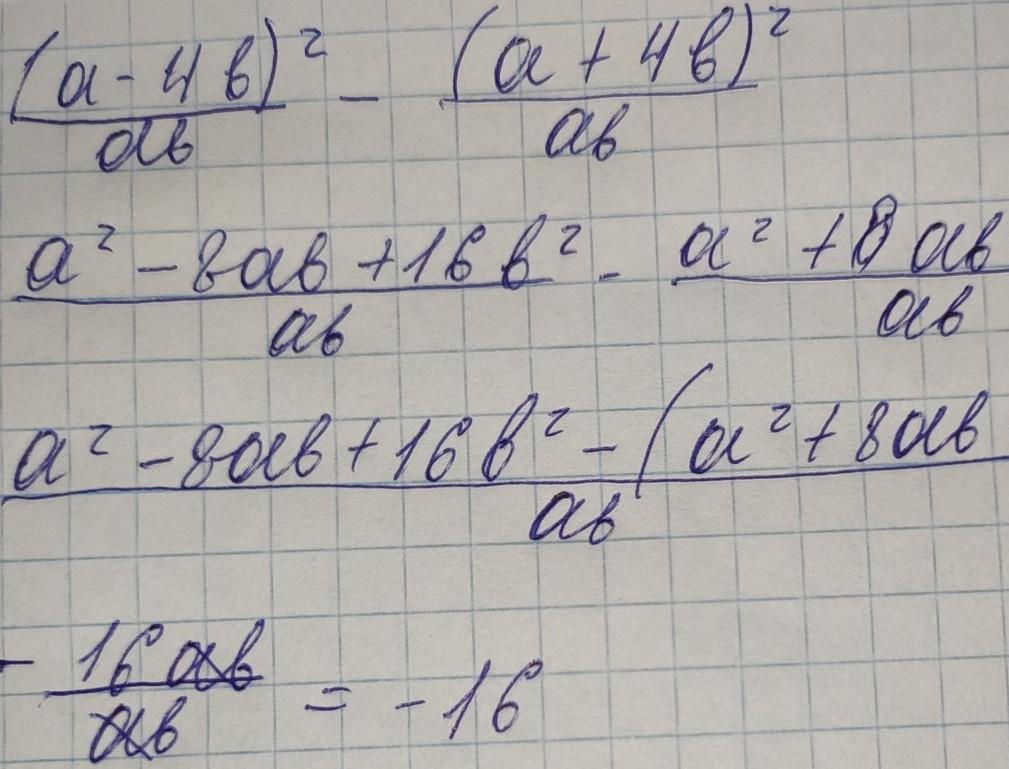 (a - 4b)² / ab - (a + 4b)² / ab
a² - 8ab + 16b² / ab - a² + 8ab / ab
a² - 8ab + 16b² - (a² + 8ab / ab
- 16ab / ab = - 16